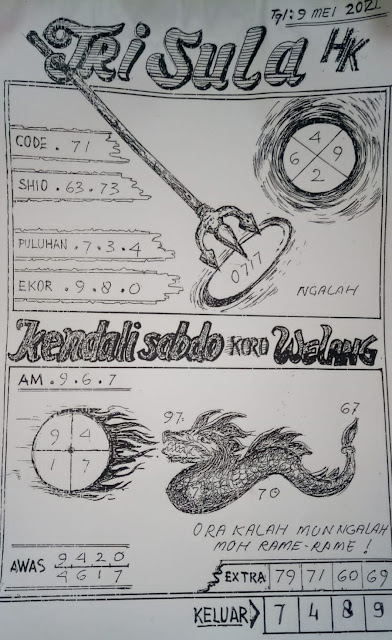 Tgl: 9 MEI 2021
TRI SULA HK
CODE . 71
SHIO . 63 . 73
PULUHAN . 7 . 3 . 4
EKOR . 9 . 8 . 0
4
6 9
2
0717
NGALAH
Kendali sabdo KORO WELANG
AM . 9 . 6 . 7
9 4
1 7
97
67
70
ORA KALAH MUN NGALAH
MOH RAME-RAME !
AWAS 9 4 2 0
4 6 1 7
EXTRA 79 71 60 69
KELUAR 7 4 8 9